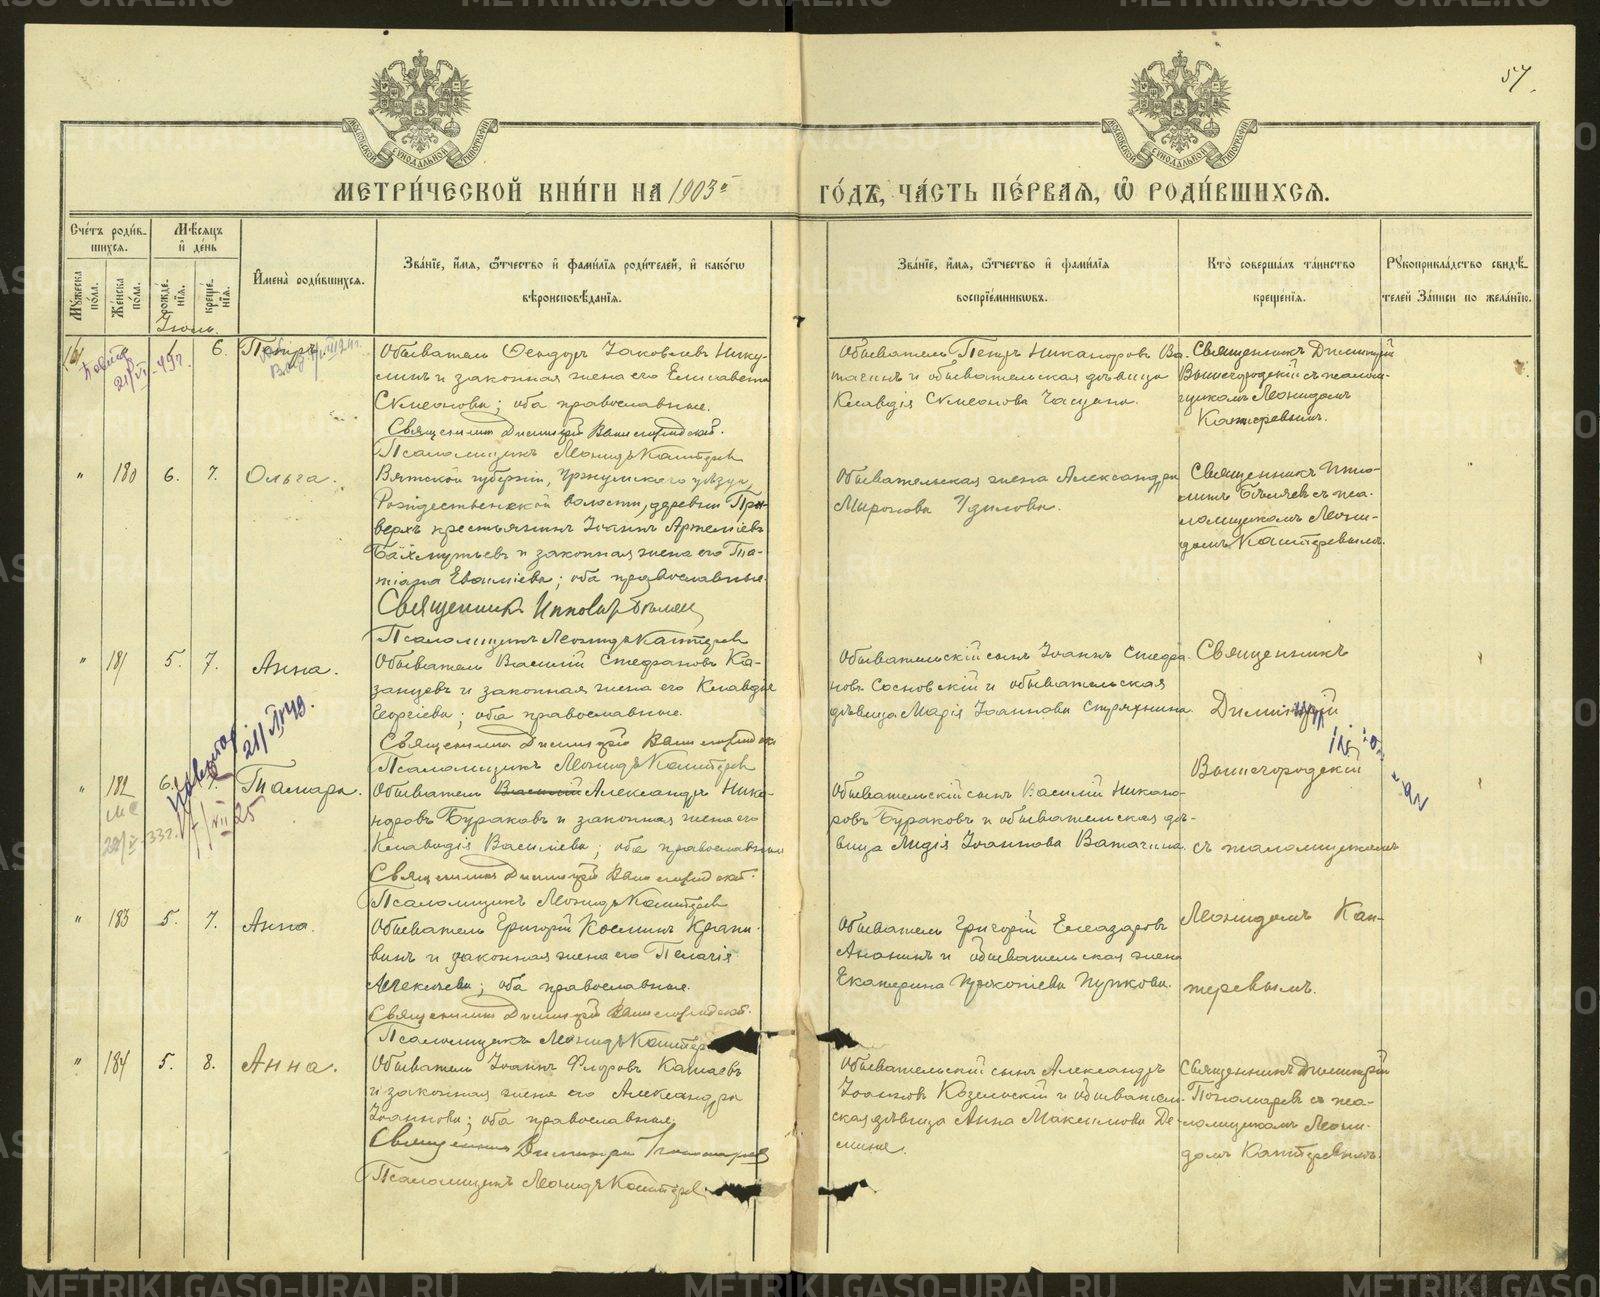 57.
МЕТРИ́ЧЕСКОЙ КНИ́ГИ НА 1903 й
ГО́ДЪ, ЧА́СТЬ ПЕ́РВАѦ, Ѡ҆ РОДИ́ВШИХСѦ.
Сче́тъ роди́в-
шихсѧ.
Мѣ́сѧцъ
и҆ де́нь
Мꙋ́жеска по́ла.
Же́нска по́ла.
рожде́нїѧ.
креще́нїѧ.
И҆мена̀ роди́вшихсѧ.
Зва́нїе, и҆́мѧ, ѻ҆́тчество и҆ фами́лїѧ роди́телей, и҆ како́гѡ
вѣроисповѣ́данїѧ.
Зва́нїе, и҆́мѧ, ѻ҆́тчество и҆ фами́лїѧ
воспрїе́мникѡвъ.
Кто̀ соверша́лъ та́инство
креще́нїѧ.
Рꙋкоприкла́дство свидѣ́-
телей За́писи по жела́нїю.
Іюль.
6. Петръ
Обыватель Ѳеодоръ Іаковлевъ Нику-
линъ и законная жена его Елисавета
Симеонова; оба православные.
Священникъ Димитрій Вышегородскій.
Псаломщикъ Леонидъ Каптеревъ
Обыватель Петръ Никаноровъ Ва-
тагинъ и обывательская дѣвица
Клавдія Симеонова
Священникъ Димитрій
Вышегородскій съ псалом-
щикомъ Леонидомъ
Каптеревымъ.
" 180 6. 7. Ольга.
Вятской губерніи, Уржумскаго уѣзда,
Рождественской волости, деревни
крестьянинъ Іоаннъ Артеміевъ
и законная жена его Та-
тіана; оба православные.
Священникъ Ипполитъ Бѣляевъ
Псаломщикъ Леонидъ Каптеревъ
Обывательская жена Александра
Миронова Удилова.
Священникъ Иппо-
литъ Бѣляевъ съ пса-
ломщикомъ Леони-
домъ Каптеревымъ.
" 181 5. 7. Анна.
Обыватель Василій Стефановъ Ка-
занцевъ и законная жена его Клавдія
Георгіева; оба православные.
Священникъ Димитрій Вышегородскій
Псаломщикъ Леонидъ Каптеревъ
Обывательскій сынъ Іоаннъ Стефа-
новъ Сосновскій и обывательская
дѣвица Марія Іоаннова Стряхнина.
Священникъ
Димитрій
Вышегородскій
съ псаломщикомъ
Леонидомъ Кап-
теревымъ.
" 182 6. 7. Тамара.
Обыватель Василій Александръ Ника-
норовъ Бураковъ и законная жена его
Клавдія Василіева; оба православные
Священникъ Димитрій Вышегородскій.
Псаломщикъ Леонидъ Каптеревъ
Обывательскій сынъ Василій Никано-
ровъ Бураковъ и обывательская дѣ-
вица Лидія Іоаннова Ватагина.
" 183 5. 7. Анна.
Обыватель Григорій Косминъ Крапи-
винъ и законная жена его Пелагія
Алексіева; оба православные.
Священникъ Димитрій Вышегородскій.
Псаломщикъ Леонидъ Каптеревъ
Обыватель Григорій Елеазаровъ
Ананьинъ и обывательская жена
Екатерина Прокопіева Пупкова.
" 184 5. 8. Анна.
Обыватель Іоаннъ Флоровъ Катаевъ
и законная жена его Александра
Іоаннова; оба православные.
Священникъ Димитрій Пономаревъ
Псаломщикъ Леонидъ Каптеревъ
Обывательскій сынъ Александръ
Іоанновъ Козельскій и обыватель-
ская дѣвица Анна Максимова Де-
мина.
Священникъ Димитрій
Пономаревъ съ пса-
ломщикомъ Леони-
домъ Каптеревымъ.
METRIKI.GASO-URAL.RU